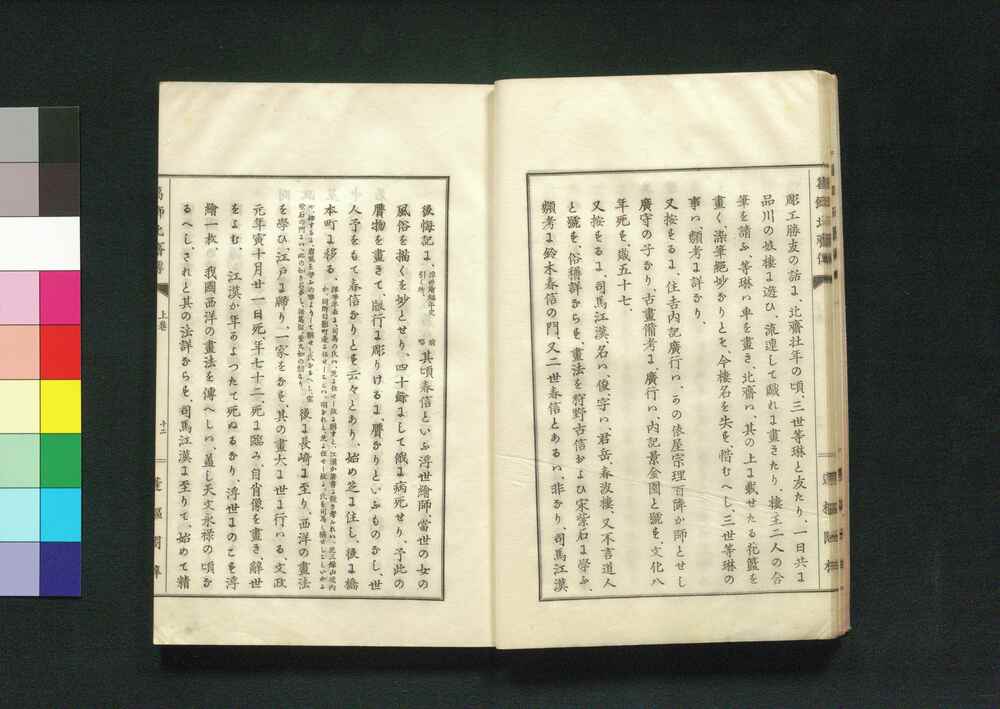 彫工勝友の話に、北齋壮年の頃、三世等琳と友たり、一日共に
品川の妓樓に遊び、流連して戯れに畫きたり、樓主二人の合
筆を請ふ、等琳ハ車を畫き、北齋ハ、其の上に載せたる花籃を
畫く、染筆絕妙なりとぞ、今樓名を失を惜むべし、三世等琳の
事ハ、類考に詳なり、
又按ずるに、住吉内記廣行ハ、かの俵屋宗理百蹄が師とせし
廣守の子なり、古畫備考に、廣行ハ、内記景金園と號を、文化八
年死を、歲五十七、
又按ずるに、司馬江漢名ハ、俊、字ハ、君岳春波樓、又不言道人
と號を、俗稱詳ならを、畫法を狩野古信および宋紫石に學ふ、
類考に鈴木春信の門、又二世春信とあるハ、非なり、司馬江漢
後悔記に、浮世繪編年史引く所、前略 其頃春信といふ浮世繪師、當世の女の
風俗を描くを妙とせり、四十餘にして俄に病死せり、予此の
贋物を畫きて、版行に彫りけるに、贋なりといふものなし、世
人予をもて春信なりとを云々とあり、始め芝に住し、後に橋
本町に移る、
後に長崎に至り、西洋の畫法
を學ひ、江戸に歸り、一家をなを、其の畫大に世に行ハる、文政
元年寅十月廿一日死、年七十二、死に臨み、自肖像を畫き、辭世
をよむ、江漢が年がよつたて死ぬるなり、浮世にのこを浮
繪一枚、我國西洋の畫法を傳へしハ、蓋し天文永祿の頃な
るへし、されと其の法詳ならを、司馬江漢に至りて、始めて精
上卷
十二
蓬樞閣梓